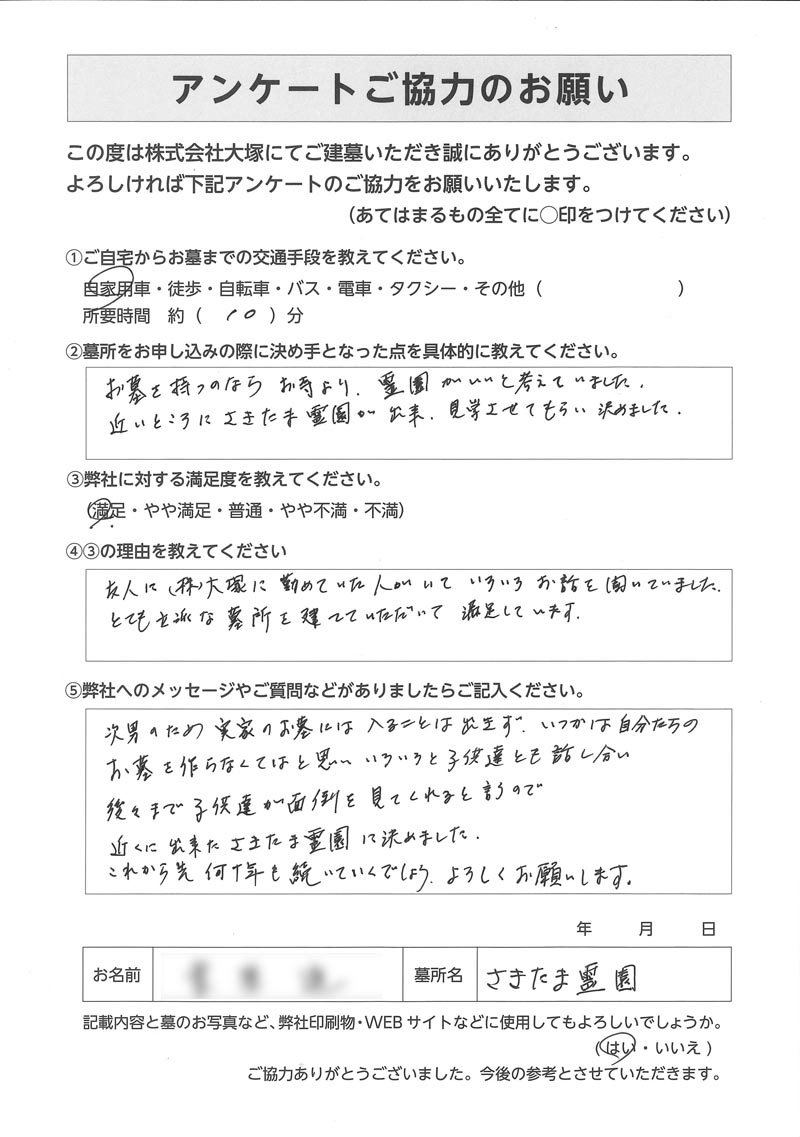 アンケートご協力のお願い
この度は株式会社大塚にてご建墓いただき誠にありがとうございます。
よろしければ下記アンケートのご協力をお願いいたします。
（あてはまるもの全てに○印をつけてください）
①ご自宅からお墓までの交通手段を教えてください。
自家用車・徒歩・自転車・バス・電車・タクシー・その他（　　　）
所要時間　約（　10　）分
②墓所をお申し込みの際に決め手となった点を具体的に教えてください。
お墓を持つのなら お寺より、霊園がいいと考えていました。
近いところにさきたま霊園が出来、見学させてもらい決めました。
③弊社に対する満足度を教えてください。
（満足・やや満足・普通・やや不満・不満）
④③の理由を教えてください
友人に（株）大塚に勤めていた人がいて いろいろお話を聞いていました。
とても立派な墓所を建てていただいて 満足しています。
⑤弊社へのメッセージやご質問などがありましたらご記入ください。
次男のため 実家のお墓には入ることは出来ず、いつかは自分たちの
お墓を作らなくてはと思い いろいろと子供達とも話し合い
後々まで子供達が面倒を見てくれると言うので
近くに出来たさきたま霊園に決めました。
これから先 何十年も続いていくでしょう。よろしくお願いします。
年　月　日
お名前
墓所名　さきたま霊園
記載内容と墓のお写真など、弊社印刷物・WEBサイトなどに使用してもよろしいでしょうか。
（はい・いいえ）
ご協力ありがとうございました。今後の参考とさせていただきます。